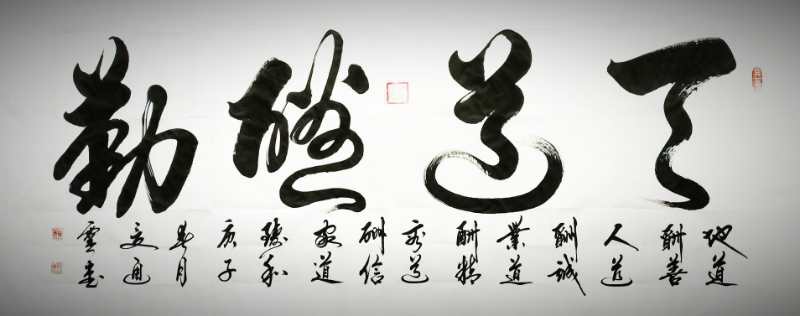 天道酬勤
地道
酬善
人道
酬誠
業道
酬精
商道
酬信
家道
和
庚子
春月